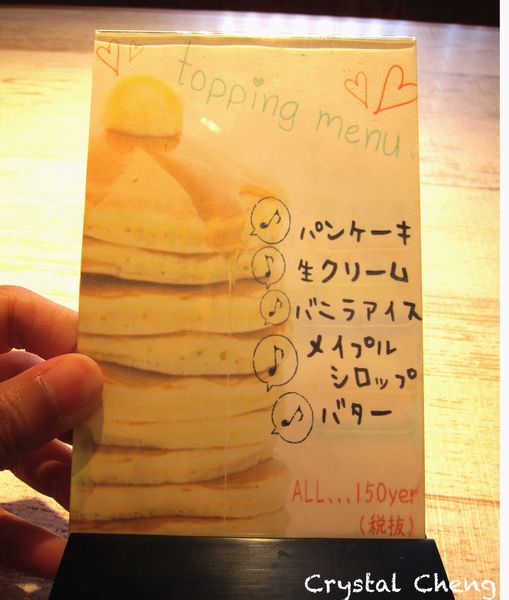 topping menu.
パンケーキ
生クリーム
バニラアイス
メイプル
シロップ
バター
ALL...150yen
(税抜)
Crystal Cheng